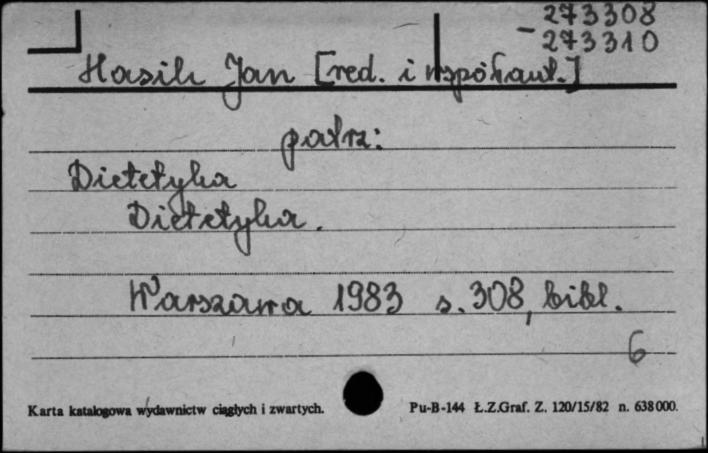 273308
- 273310
Hasik Jan [red. i współaut.]
patrz:
Dietetyka
Dietetyka.
Warszawa 1983 s. 308, bibl.
6
Karta katalogowa wydawnictw ciągłych i zwartych.
Pu-B-144 Ł.Z.Graf. Z. 120/15/82 n. 638000.